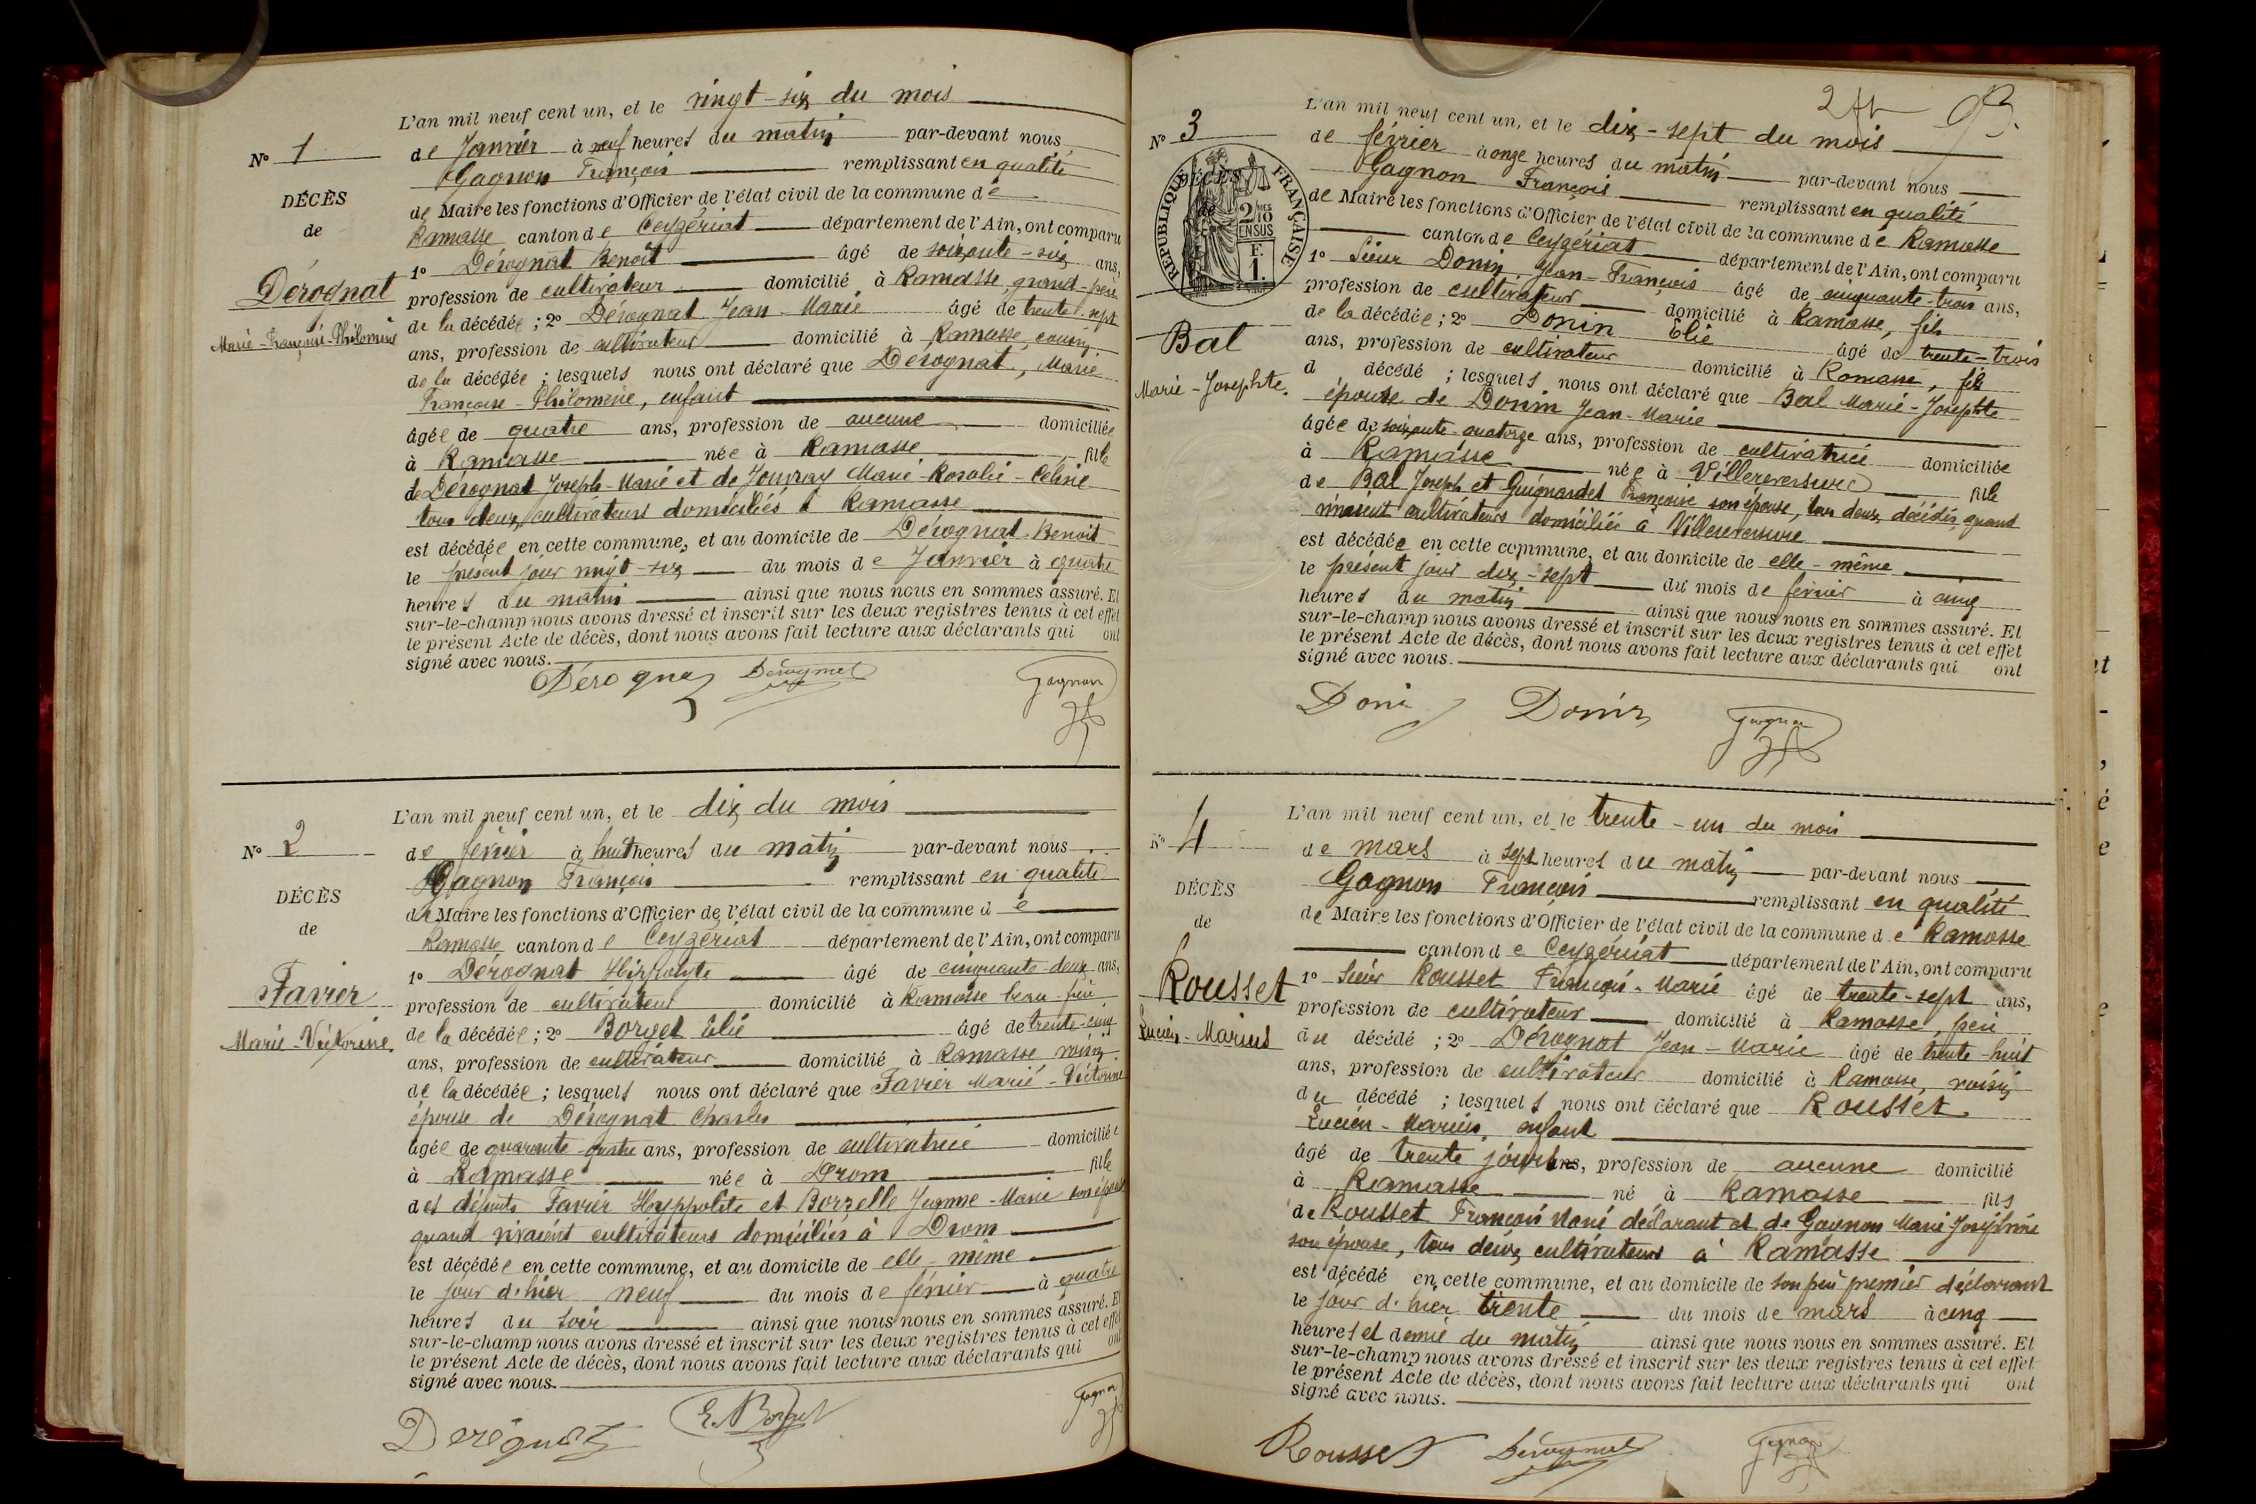 L'an mil neuf cent un, et le vingt-six du mois
de Janvier à neuf heures du matin par-devant nous
Gagnon François remplissant en qualité
de Maire les fonctions d'Officier de l'état civil de la commune de
Ramasse canton de Ceyzériat département de l'Ain, ont comparu
1º Dérognat Benoit âgé de soixante-six ans,
profession de cultivateur domicilié à Ramasse, grand-père
de la décédée ; 2º Dérognat Jean-Marie âgé de trente-sept
ans, profession de cultivateur domicilié à Ramasse, cousin
de la décédée ; lesquels nous ont déclaré que Dérognat, Marie
Françoise-Philomène, enfant
âgée de quatre ans, profession de aucune domiciliée
à Ramasse née à Ramasse fille
de Dérognat Joseph-Marie et de Jouvray Marie-Rosalie-Céline
tous deux cultivateurs domiciliés à Ramasse
est décédée en cette commune, et au domicile de Dérognat Benoit
le présent jour vingt-six du mois de Janvier à quatre
heures du matin ainsi que nous nous en sommes assuré. Et
sur-le-champ nous avons dressé et inscrit sur les deux registres tenus à cet effet
le présent Acte de décès, dont nous avons fait lecture aux déclarants qui ont
signé avec nous.
Dérognat Dérognat Gagnon
Nº 1
DÉCÈS
de
Dérognat
Marie-Françoise-Philomène
L'an mil neuf cent un, et le dix du mois
de février à huit heures du matin par-devant nous
Gagnon François remplissant en qualité
de Maire les fonctions d'Officier de l'état civil de la commune de
Ramasse canton de Ceyzériat département de l'Ain, ont comparu
1º Dérognat Hippolyte âgé de cinquante-deux ans,
profession de cultivateur domicilié à Ramasse beau-frère
de la décédée ; 2º Borget Elie âgé de trente-cinq
ans, profession de cultivateur domicilié à Ramasse voisin
de la décédée ; lesquels nous ont déclaré que Favier Marie-Victorine
épouse de Dérognat Charles
âgée de quarante-quatre ans, profession de cultivatrice domiciliée
à Ramasse née à Drom fille
des défunts Favier Hyppolite et Borrelle Jeanne-Marie son épouse
quand vivaient cultivateurs domiciliés à Drom
est décédée en cette commune, et au domicile de elle-même
le jour d'hier neuf du mois de février à quatre
heures du soir ainsi que nous nous en sommes assuré. Et
sur-le-champ nous avons dressé et inscrit sur les deux registres tenus à cet effet
le présent Acte de décès, dont nous avons fait lecture aux déclarants qui ont
signé avec nous.
Derognat E. Borget Gagnon
Nº 2
DÉCÈS
de
Favier
Marie-Victorine.
93.
L'an mil neuf cent un, et le dix-sept du mois
de février à onze heures du matin par-devant nous
Gagnon François remplissant en qualité
de Maire les fonctions d'Officier de l'état civil de la commune de Ramasse
canton de Ceyzériat département de l'Ain, ont comparu
1º Sieur Donin, Jean-François âgé de cinquante-trois ans,
profession de cultivateur domicilié à Ramasse, fils
de la décédée ; 2º Donin Elie âgé de trente-trois
ans, profession de cultivateur domicilié à Ramasse, fils
d décédé ; lesquels nous ont déclaré que Bal Marie-Josephte
épouse de Donin Jean-Marie
âgée de soixante-quatorze ans, profession de cultivatrice domiciliée
à Ramasse née à Villereversure fille
de Bal Joseph et Guignardet Françoise son épouse, tous deux décédés, quand
vivaient cultivateurs domiciliés à Villereversure
est décédée en cette commune, et au domicile de elle-même
le présent jour dix-sept du mois de février à cinq
heures du matin ainsi que nous nous en sommes assuré. Et
sur-le-champ nous avons dressé et inscrit sur les deux registres tenus à cet effet
le présent Acte de décès, dont nous avons fait lecture aux déclarants qui ont
signé avec nous.
Donin Donin Gagnon
Nº 3
DÉCÈS
de
RÉPUBLIQUE FRANÇAISE
2/10
EN SUS
F.
1.
Bal
Marie-Josephte.
L'an mil neuf cent un, et le trente-un du mois
de mars à sept heures du matin par-devant nous
Gagnon François remplissant en qualité
de Maire les fonctions d'Officier de l'état civil de la commune de Ramasse
canton de Ceyzériat département de l'Ain, ont comparu
1º Sieur Rousset François-Marie âgé de trente-sept ans,
profession de cultivateur domicilié à Ramasse, père
du décédé ; 2º Dérognat Jean-Marie âgé de trente-huit
ans, profession de cultivateur domicilié à Ramasse, voisin
du décédé ; lesquels nous ont déclaré que Rousset
Lucien-Marius, enfant
âgé de trente jours ans, profession de aucune domicilié
à Ramasse né à Ramasse fils
de Rousset François Marie déclarant et de Gagnon Marie Joséphine
son épouse, tous deux cultivateurs à Ramasse
est décédé en cette commune, et au domicile de son père premier déclarant
le jour d'hier trente du mois de mars à cinq
heures et demie du matin ainsi que nous nous en sommes assuré. Et
sur-le-champ nous avons dressé et inscrit sur les deux registres tenus à cet effet
le présent Acte de décès, dont nous avons fait lecture aux déclarants qui ont
signé avec nous.
Rousset Dérognat Gagnon
Nº 4
DÉCÈS
de
Rousset
Lucien-Marius